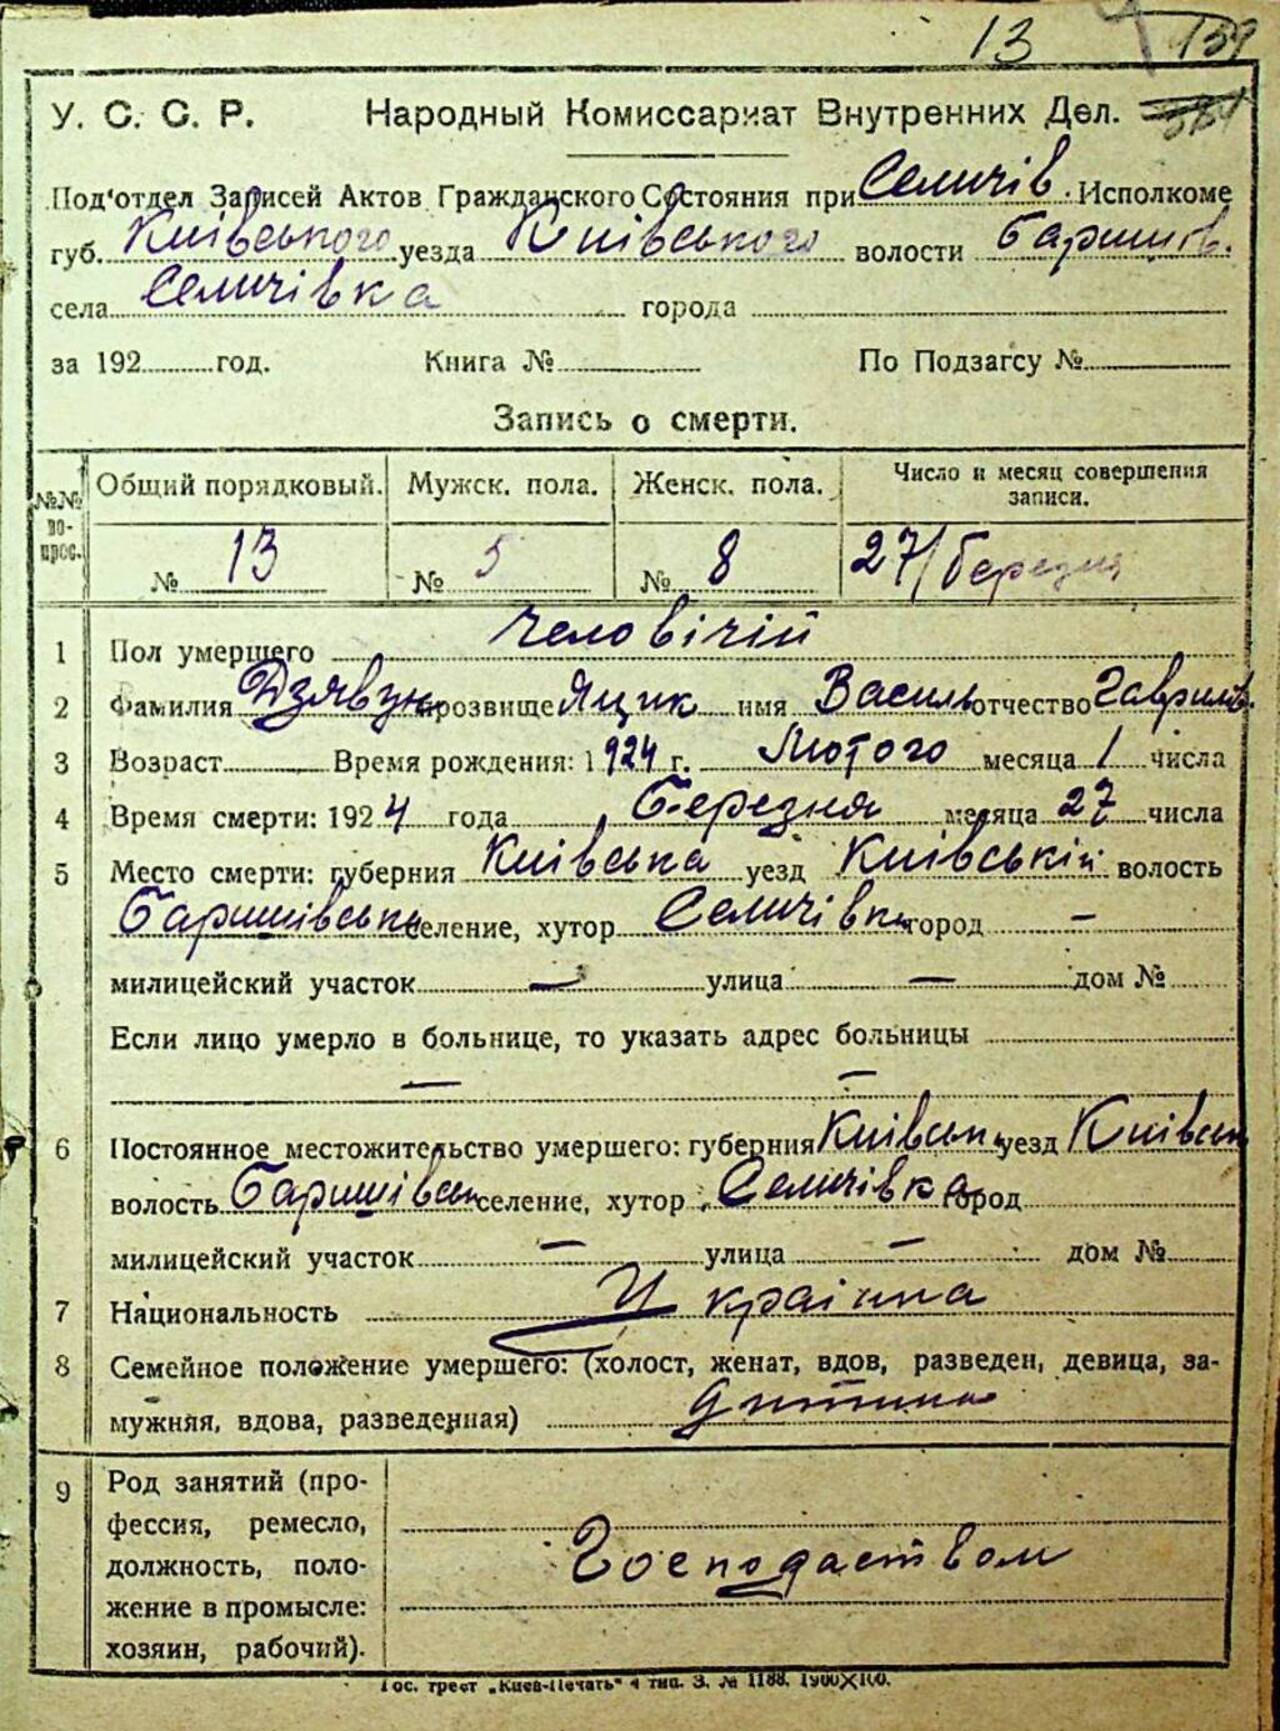 13 139
У. С. С. Р. Народный Комиссариат Внутренних Дел.
Под'отдел Записей Актов Гражданского Состояния при Селичів. Исполкоме
губ. Київського уезда Київського волости Баришів.
села Селичівка города
за 192 год. Книга № По Подзагсу №
Запись о смерти.
№№ вопрос. Общий порядковый. Мужск. пола. Женск. пола. Число и месяц совершения записи.
№ 13 № 5 № 8 27/Березня
1 Пол умершего Человічій
2 Фамилия прозвище Ящик имя Василь отчество Гаврилов.
3 Возраст Время рождения: 1924 г. Лютого месяца 1 числа
4 Время смерти: 1924 года Березня месяца 27 числа
5 Место смерти: губерния Київська уезд Київській волость
Баришівська селение, хутор Селичівка город —
милицейский участок — улица — дом №
Если лицо умерло в больнице, то указать адрес больницы
— —
6 Постоянное местожительство умершего: губерния Київськ уезд Київськ
волость Баришівськ селение, хутор Селичівка город
милицейский участок — улица — дом №
7 Национальность Україна
8 Семейное положение умершего: (холост, женат, вдов, разведен, девица, за-
мужняя, вдова, разведенная) дитина
9 Род занятий (про-
фессия, ремесло,
должность, поло-
жение в промысле:
хозяин, рабочий).
Господаством
Гос. трест „Киев-Печать" 4 тип. З. № 1188. 1900×100.